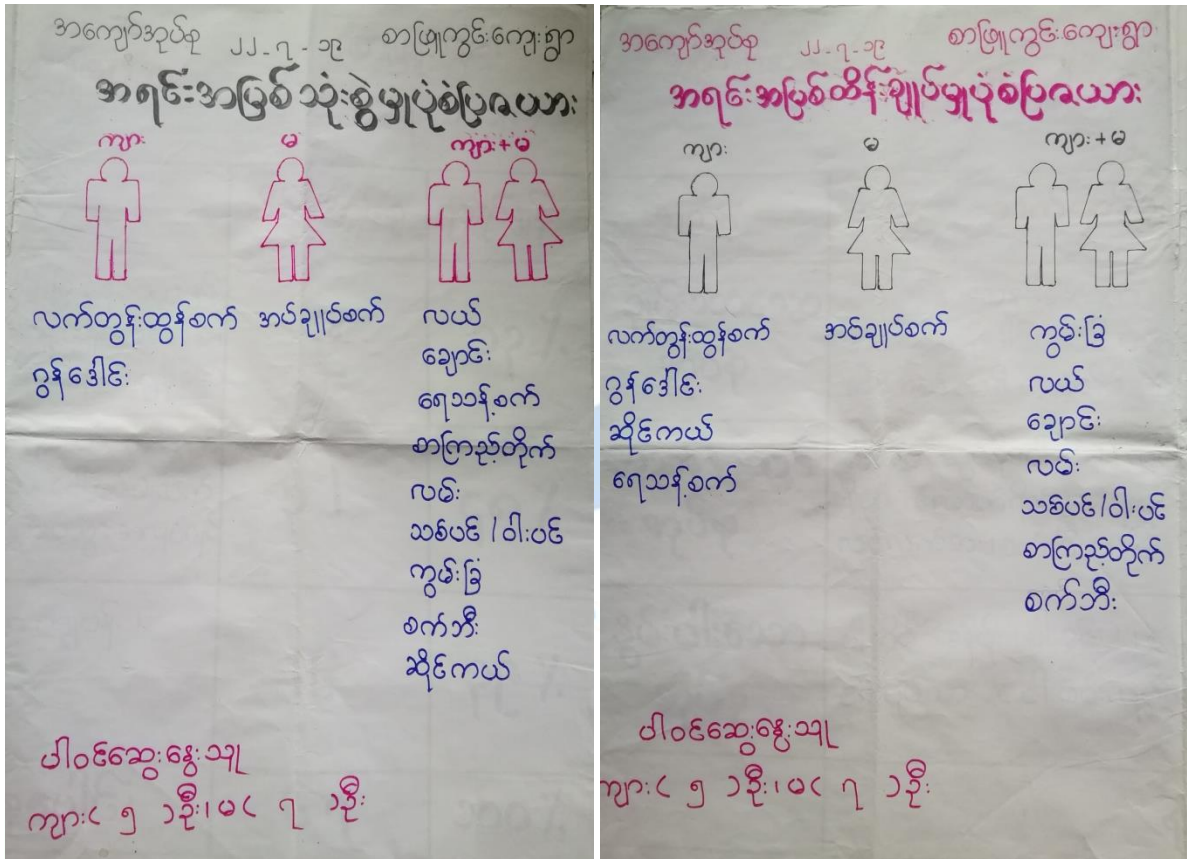 အကျော်အုပ်စု ၂၂-၇-၁၉ စာဖြူကွင်းကျေးရွာ
အရင်းအမြစ်သုံးစွဲမှုပုံစံပြဇယား
ကျား မ ကျား+မ
လက်တွန်းထွန်စက် အပ်ချုပ်စက် လယ်
ဂွန်ဒေါင်း ချောင်း
ရေသန့်စက်
စာကြည့်တိုက်
လမ်း
သစ်ပင်/ဝါးပင်
ကွမ်းခြံ
စက်ဘီး
ဆိုင်ကယ်
ပါဝင်ဆွေးနွေးသူ
ကျား( ၅ )ဦး၊ မ( ၇ )ဦး
အကျော်အုပ်စု ၂၂-၇-၁၉ စာဖြူကွင်းကျေးရွာ
အရင်းအမြစ်ထိန်းချုပ်မှုပုံစံပြဇယား
ကျား မ ကျား+မ
လက်တွန်းထွန်စက် အပ်ချုပ်စက် ကွမ်းခြံ
ဂွန်ဒေါင်း လယ်
ဆိုင်ကယ် ချောင်း
ရေသန့်စက် လမ်း
သစ်ပင်/ဝါးပင်
စာကြည့်တိုက်
စက်ဘီး
ပါဝင်ဆွေးနွေးသူ
ကျား( ၅ )ဦး၊ မ( ၇ )ဦး